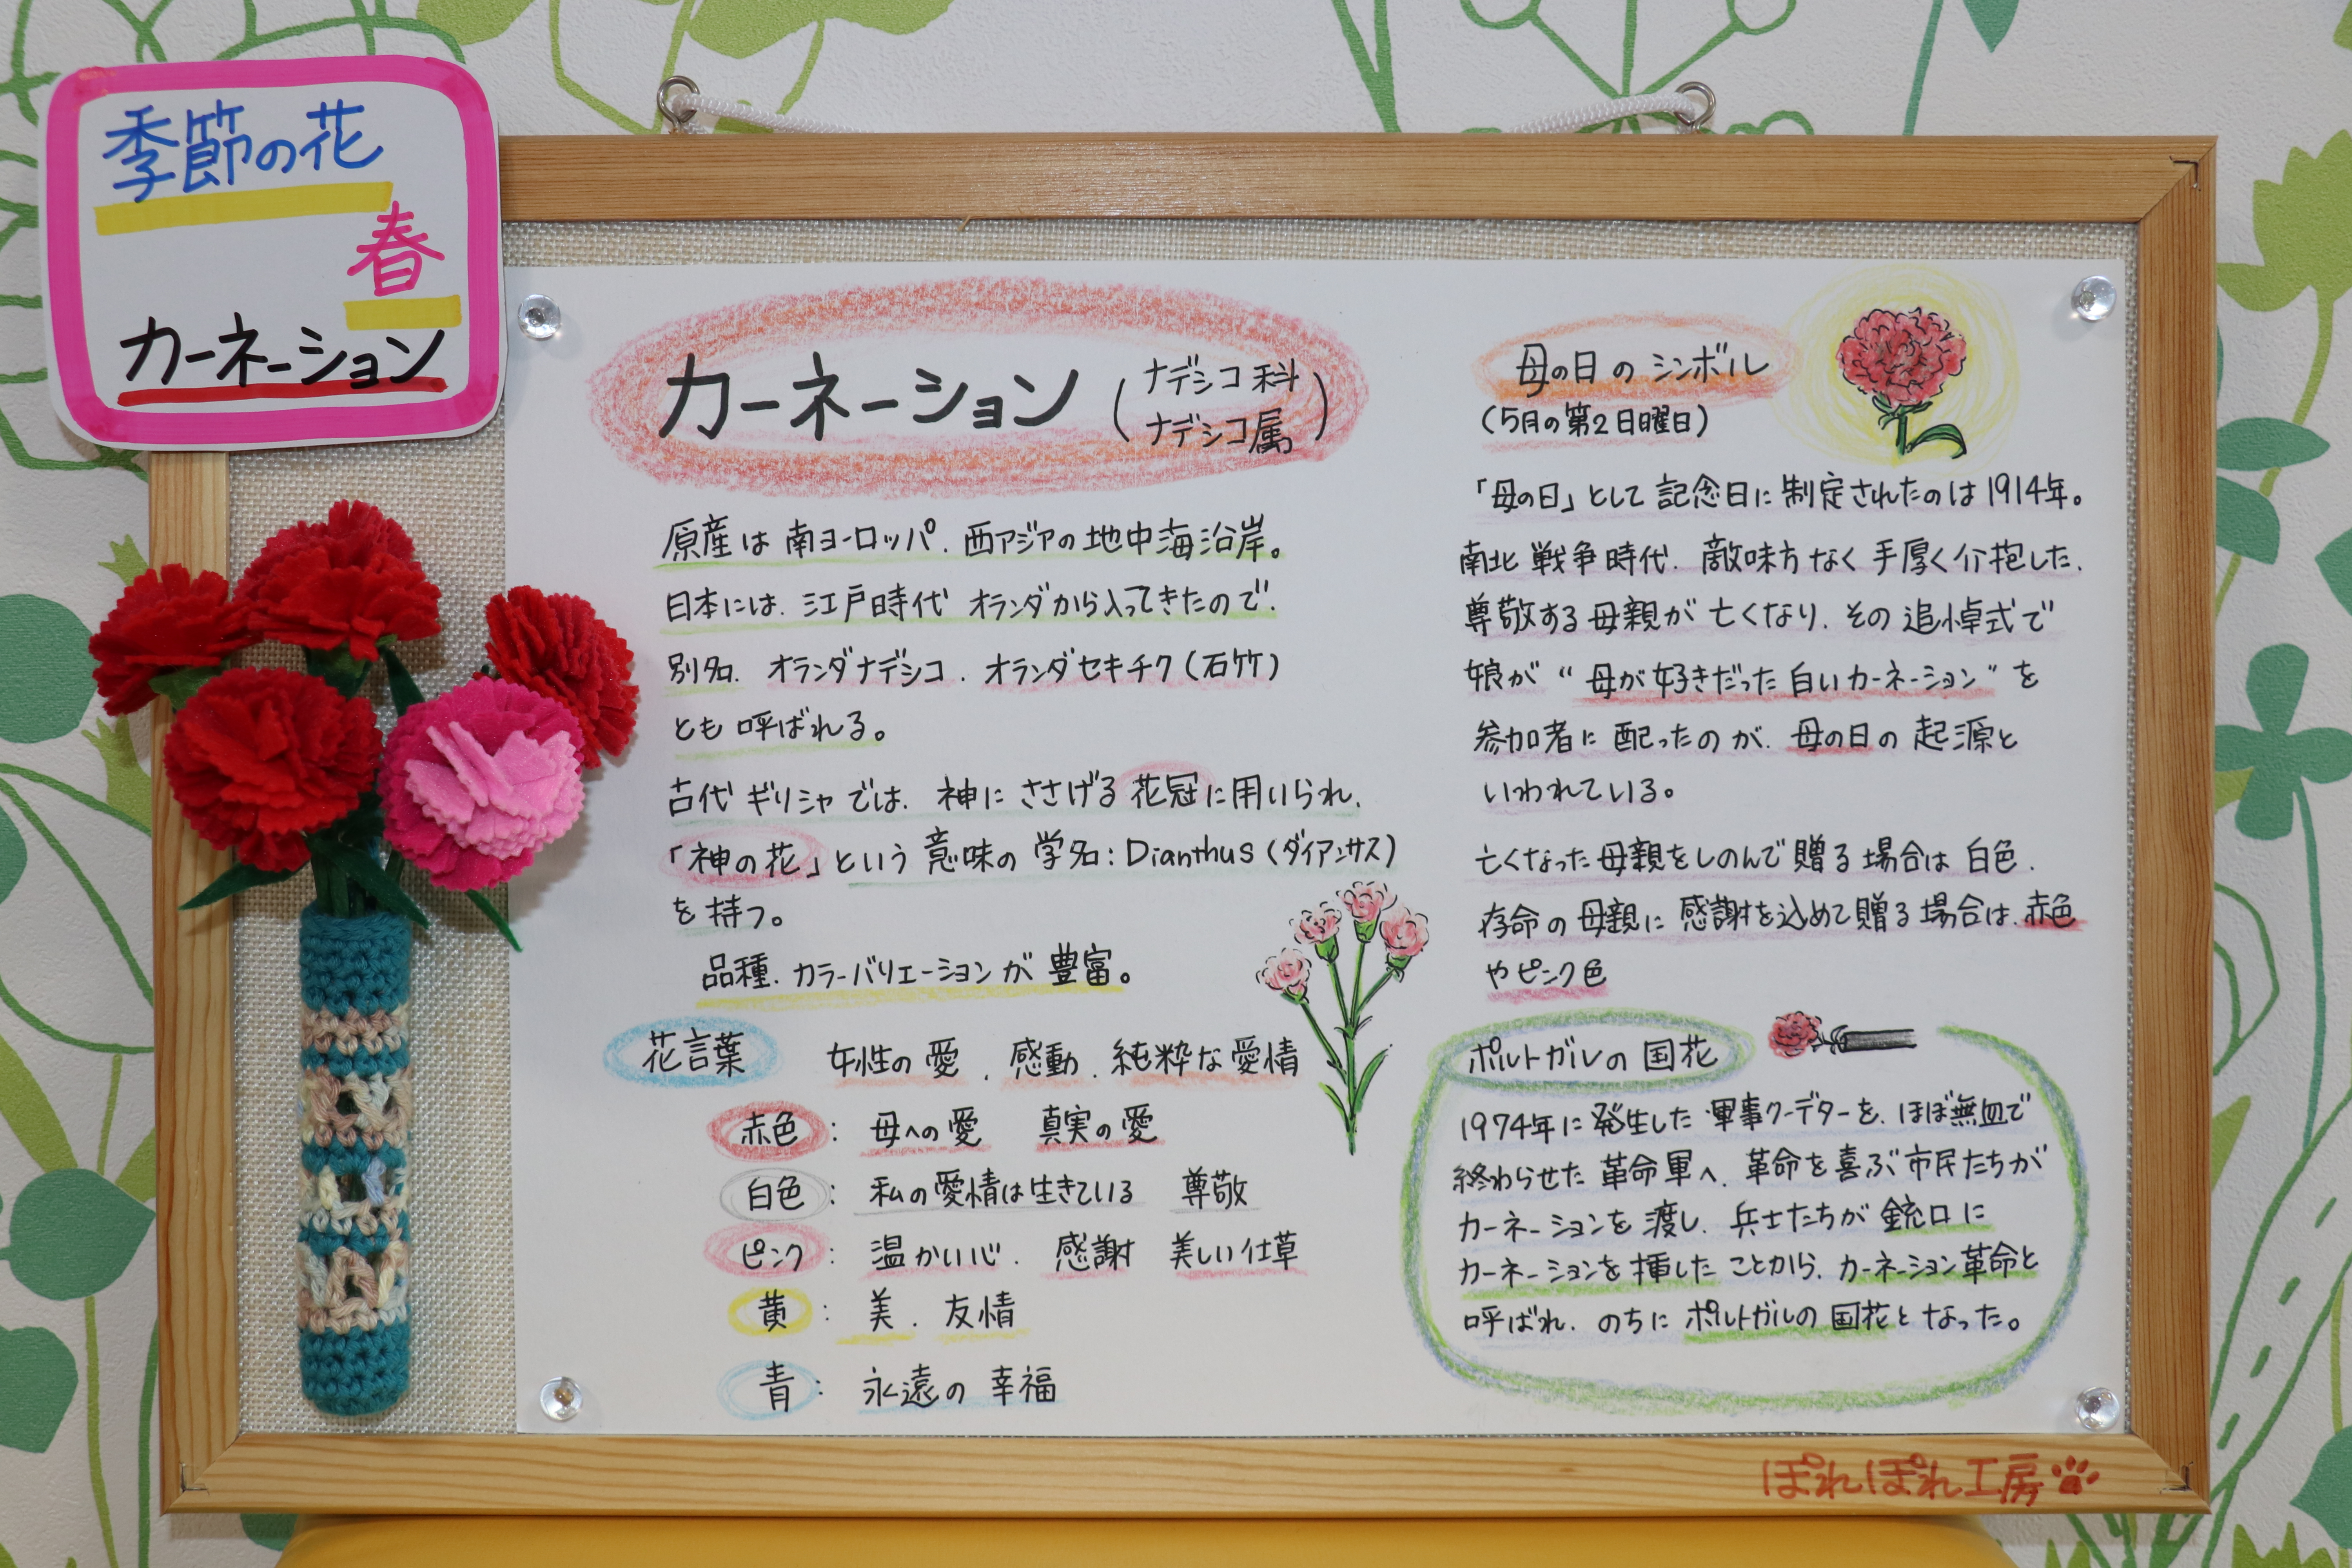 季節の花
春
カーネーション
カーネーション(ナデシコ科
ナデシコ属)
原産は南ヨーロッパ、西アジアの地中海沿岸。
日本には、江戸時代オランダから入ってきたので、
別名、オランダナデシコ、オランダセキチク(石竹)
とも呼ばれる。
古代ギリシャでは、神にささげる花冠に用いられ、
「神の花」という意味の学名:Dianthus(ダイアンサス)
を持つ。
品種、カラーバリエーションが豊富。
花言葉 女性の愛、感動、純粋な愛情
赤色:母への愛 真実の愛
白色:私の愛情は生きている 尊敬
ピンク:温かい心、感謝 美しい仕草
黄:美、友情
青:永遠の幸福
母の日のシンボル
(5月の第2日曜日)
「母の日」として記念日に制定されたのは1914年。
南北戦争時代、敵味方なく手厚く介抱した、
尊敬する母親が亡くなり、その追悼式で
娘が“母が好きだった白いカーネーション”を
参加者に配ったのが、母の日の起源と
いわれている。
亡くなった母親をしのんで贈る場合は白色、
存命の母親に感謝を込めて贈る場合は、赤色
やピンク色
ポルトガルの国花
1974年に発生した軍事クーデターを、ほぼ無血で
終わらせた革命軍へ、革命を喜ぶ市民たちが
カーネーションを渡し、兵士たちが銃口に
カーネーションを挿したことから、カーネーション革命と
呼ばれ、のちにポルトガルの国花となった。
ぽれぽれ工房